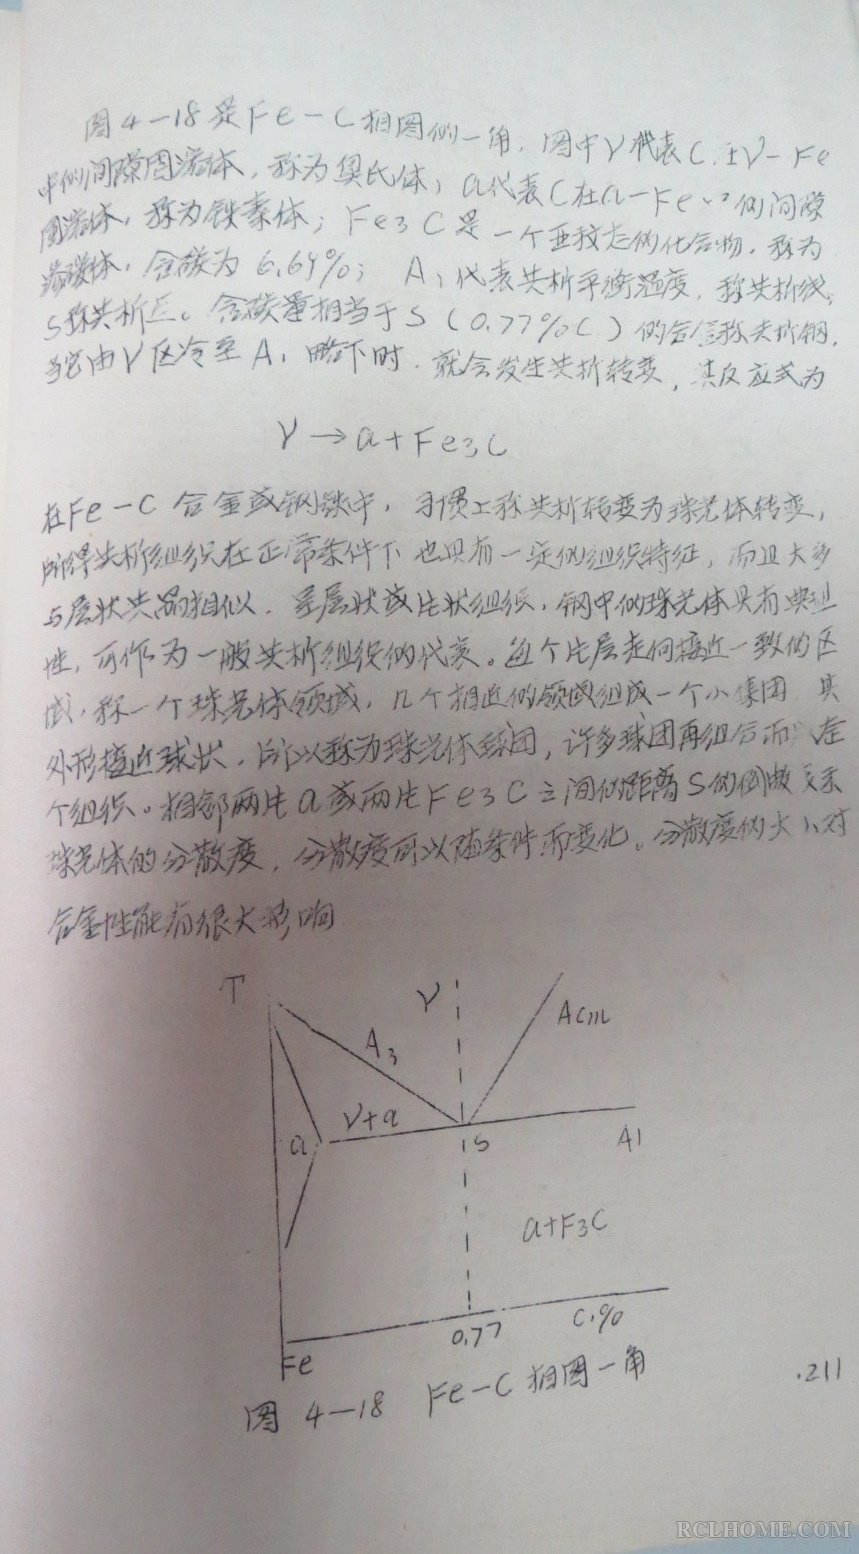 图4—18是Fe—C相图的一角。图中γ代表C在γ—Fe
中的间隙固溶体，称为奥氏体；a代表C在a—Fe中的间隙
固溶体，称为铁素体；Fe3C是一个亚稳态的化合物，称为
渗碳体，含碳为6.69%；A1代表共析平衡温度，称共析线；
S称共析点。含碳量相当于S（0.77%C）的合金称共析钢，
当它由γ区冷至A1略下时，就会发生共析转变，其反应式为
γ→a+Fe3C
在Fe—C合金或钢铁中，习惯上称共析转变为珠光体转变，
所得共析组织在正常条件下也具有一定的组织特征，而且大多
与层状共晶相似，呈层状或片状组织，钢中的珠光体具有典型
性，可作为一般共析组织的代表。每个片层走向接近一致的区
域，称一个珠光体领域，几个相近的领域组成一个小集团，其
外形接近球状，所以称为珠光体球团，许多球团再组合而
个组织。相邻两片a或两片Fe3C之间的距离S的倒数
珠光体的分散度，分散度可以随条件而变化。分散度的大小对
合金性能有很大影响
T
γ
A3
Acm
γ+a
a
S
A1
a+F3C
0.77
C.%
Fe
图4—18 Fe—C相图一角
.211
RCLHOME.COM